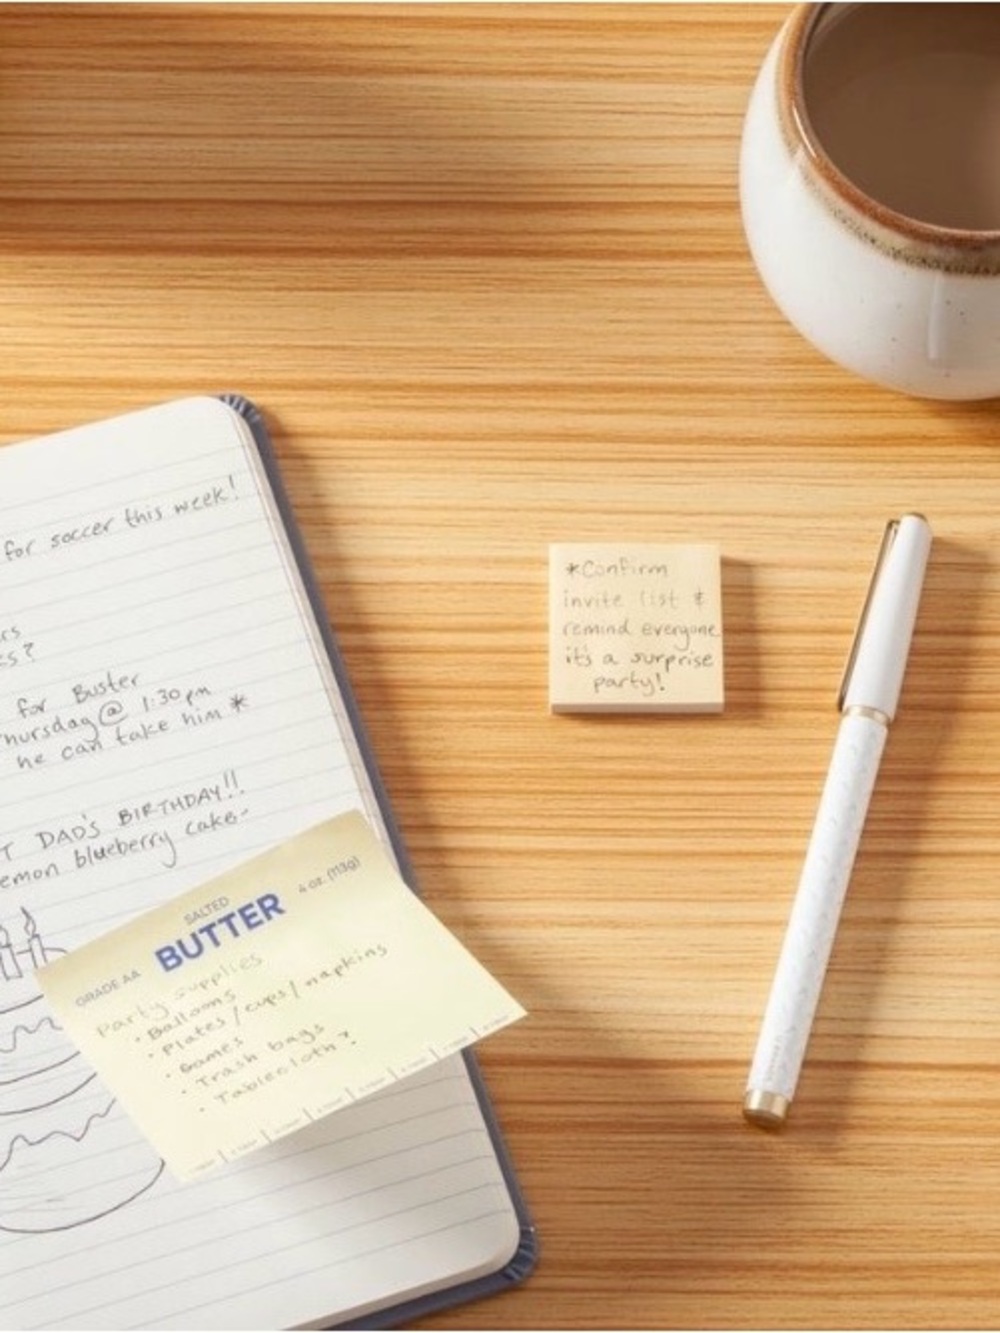 for soccer this week!
rs
s?
for Buster
hursday @ 1:30pm
he can take him *
T DAD'S BIRTHDAY!!
emon blueberry cake-
SALTED
4 oz. (113g)
GRADE AA
BUTTER
Party supplies
• Balloons
• Plates/cups/napkins
• Games
• Trash bags
• Tablecloth?
*Confirm
invite list &
remind everyone
it's a surprise
party!